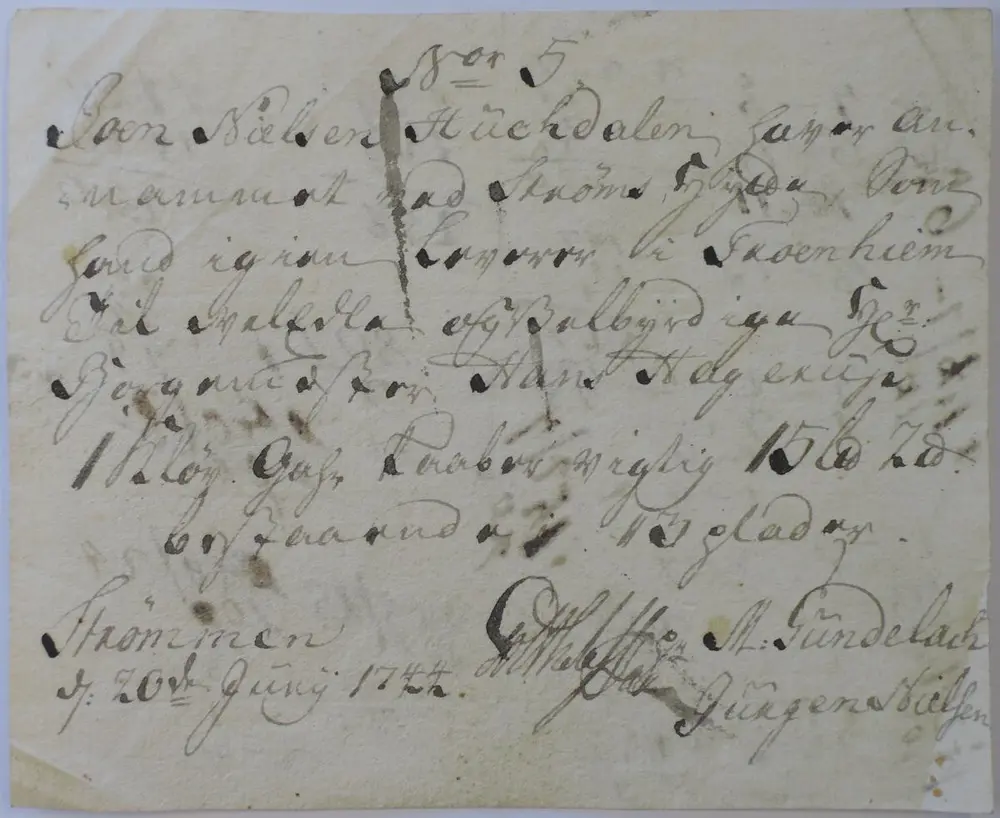 Nor 5
Joen Nielsen Hüchdalen haver an-
nammet ved Strøms Hytte, Som
hand igien Leverer i Troenhiem
Til Velædle
Borgemester Hans Hagerup,
1 Kløv Gahr Kaaber vigtig 15 lb 2
bestaaende i 13 plader.
Strömmen
d: 20de Junij 1744.
M: Gundelach
Jürgen Nielsen